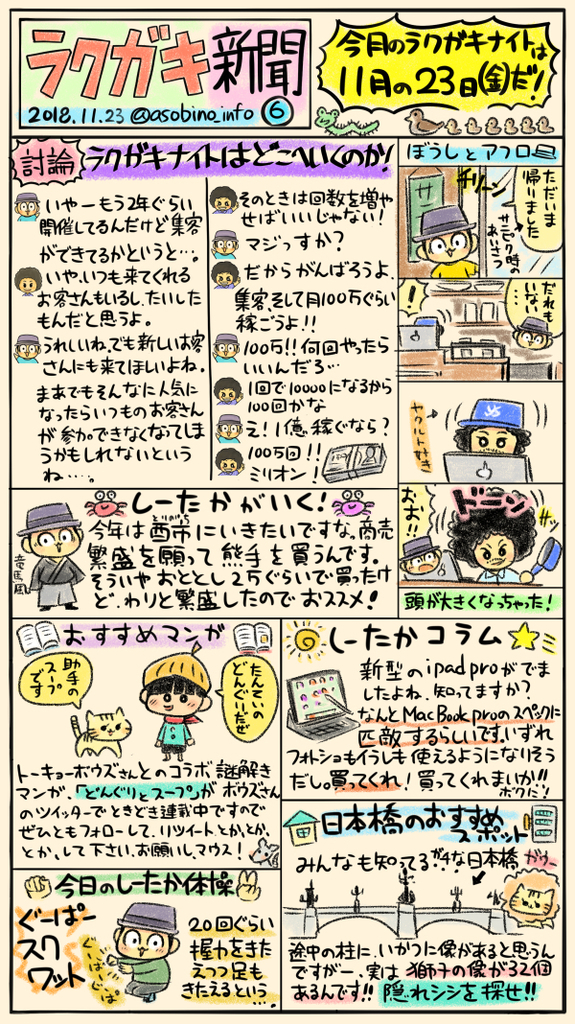 ラクガキ新聞
2018.11.23 @asobino_info ⑥
今月のラクガキナイトは
11月の23日(金)だ!
討論
ラクガキナイトはどこへいくのか!
いやーもう2年ぐらい
開催してるんだけど集客
ができてるかというと…。
いや、いつも来てくれる
お客さんもいるし、たいした
もんだと思うよ。
うれしいね、でも新しいお客
さんにも来てほしいよね。
まあでもそんなに人気に
なったらいつものお客さん
が参加できなくなってしま
うかもしれないという
ね……。
そのときは回数を増や
せばいいじゃない!
マジっすか?
だからがんばろうよ、
集客、そして月100万ぐらい
稼ごうよ!!
100万!!何回やったら
いいんだろ…
1回で10000になるから
100回かな
え!1億稼ぐなら?
100万回!!
ミリオン!
ぼうしとアフロ
ただいま
帰りました
チリーン
サ
サニック時の
あいさつ
だれも
いない…
!
YS
ヤクルト好き
ドーン
おお!!
サッ
頭が大きくなっちゃった!
しーたかがいく!
今年は酉市にいきたいですな、商売
とりのいち
繁盛を願って熊手を買うんです。
そういやおととし2万ぐらいで買ったけ
ど、わりと繁盛したのでおススメ!
竜馬風
おすすめマンガ
助手の
スープ
です
たんていの
どんぐりだぜ
トーキョーボウズさんとのコラボ謎解き
マンガ、「どんぐりとスープ」がボウズさん
のツイッターでときどき連載中ですので
ぜひともフォローして、リツイート、とか、とか、
とか、して下さい。お願いし、マウス!
しーたかコラム
新型のipad proがでま
したよね、知ってますか?
なんとMacBook proのスペックに
匹敵するらしいです。いずれ
フォトショもイラレも使えるようになりそう
だし。買ってくれ!買ってくれまいか!!
ボクに!
日本橋のおすすめ
スポット
みんなも知ってる、ガチな日本橋
ガウ
途中の柱に、いかつい像があると思うん
ですがー、実は獅子の像が32個
あるんです!!隠れシシを探せ!!
今日のしーたか体操
ぐーぱー
スク
ワット
ぐーぱーぐーぱー
20回ぐらい
握力をきた
えつつ足も
きたえるという…